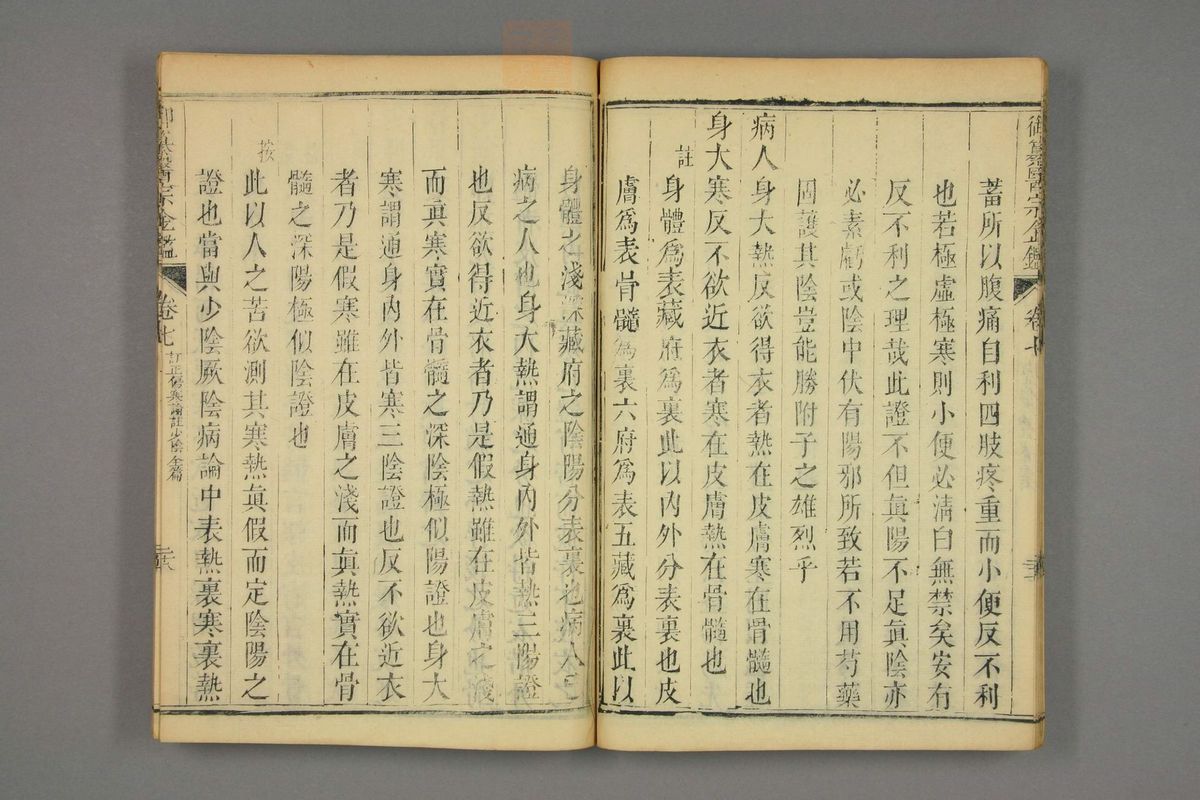 御纂醫宗金鑑 卷七
蓄所以腹痛自利四肢疼重而小便反不利
也若極虛極寒則小便必清白無禁矣安有
反不利之理哉此證不但眞陽不足眞陰亦
必素虧或陰中伏有陽邪所致若不用芍藥
固護其陰豈能勝附子之雄烈乎
病人身大熱反欲得衣者熱在皮膚寒在骨髓也
身大寒反不欲近衣者寒在皮膚熱在骨髓也
註
身體爲表藏府爲裏此以內外分表裏也皮
膚爲表骨髓爲裏六府爲表五藏爲裏此以
身體之淺深藏府之陰陽分表裏也病人
病之人也身大熱謂通身內外皆熱三陽證
也反欲得近衣者乃是假熱雖在皮膚之淺
而眞寒實在骨髓之深陰極似陽證也身大
寒謂通身內外皆寒三陰證也反不欲近衣
者乃是假寒雖在皮膚之淺而眞熱實在骨
髓之深陽極似陰證也
按
此以人之苦欲測其寒熱眞假而定陰陽之
證也當與少陰厥陰病論中表熱裏寒裏熱
醫宗金鑑 卷七 訂正傷寒論註少陰全篇 三六